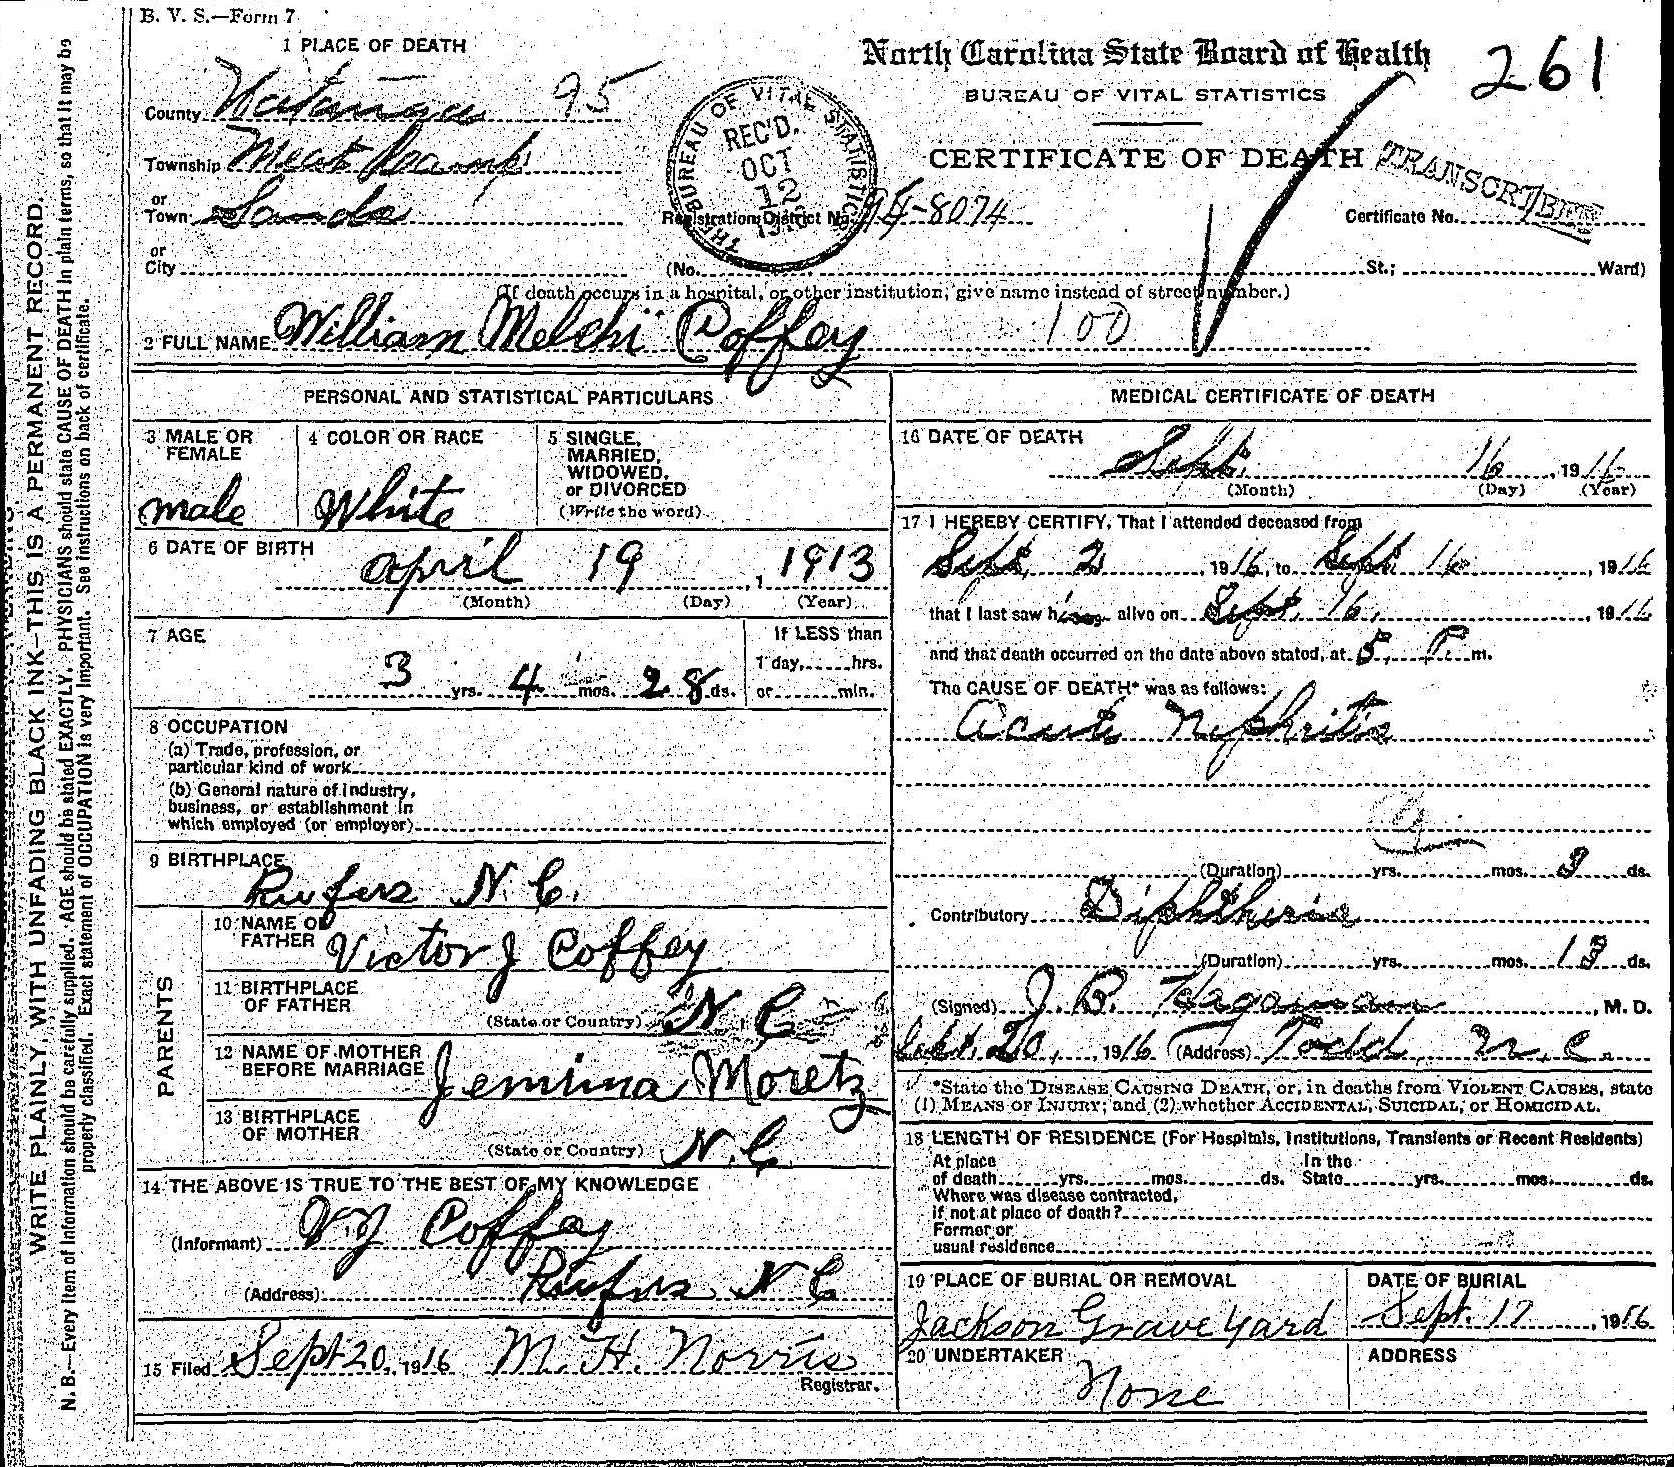 B. V. S.—Form 7
1 PLACE OF DEATH
County Watauga 95
Township Meat Camp
or Town Sands
or City
North Carolina State Board of Health
261
BUREAU OF VITAL STATISTICS
CERTIFICATE OF DEATH
TRANSCRIBED
THE BUREAU OF VITAL STATISTICS
REC'D.
OCT
12
1916
Registration District No. 95-8074
Certificate No.
(No. St.; Ward)
(If death occurs in a hospital, or other institution, give name instead of street number.)
2 FULL NAME William Melchi Coffey 100
PERSONAL AND STATISTICAL PARTICULARS
3 MALE OR FEMALE
male
4 COLOR OR RACE
White
5 SINGLE, MARRIED, WIDOWED, or DIVORCED
(Write the word)
6 DATE OF BIRTH
April 19, 1913
(Month) (Day) (Year)
7 AGE
3 yrs. 4 mos. 28 ds.
If LESS than
1 day, hrs.
or min.
8 OCCUPATION
(a) Trade, profession, or
particular kind of work
(b) General nature of industry,
business, or establishment in
which employed (or employer)
9 BIRTHPLACE
Rufus N. C.
PARENTS
10 NAME OF FATHER
Victor J Coffey
11 BIRTHPLACE OF FATHER
(State or Country) N. C
12 NAME OF MOTHER BEFORE MARRIAGE
Jemima Moretz
13 BIRTHPLACE OF MOTHER
(State or Country) N. C
14 THE ABOVE IS TRUE TO THE BEST OF MY KNOWLEDGE
(Informant) V J Coffey
(Address) Rufus N C
15 Filed Sept 20, 1916 M. H. Norris
Registrar.
MEDICAL CERTIFICATE OF DEATH
16 DATE OF DEATH
Sept. 16, 1916
(Month) (Day) (Year)
17 I HEREBY CERTIFY, That I attended deceased from
Sept. 2, 1916, to Sept. 16, 1916
that I last saw him alive on Sept. 16, 1916
and that death occurred on the date above stated, at 5, P. m.
The CAUSE OF DEATH* was as follows:
Acute Nephritis
(Duration) yrs. mos. 3 ds.
Contributory Diphtheria
(Duration) yrs. mos. 13 ds.
(Signed) J. B. Hagaman, M. D.
Sept. 20, 1916 (Address) Todd, N. C.
*State the DISEASE CAUSING DEATH, or, in deaths from VIOLENT CAUSES, state
(1) MEANS OF INJURY; and (2) whether ACCIDENTAL, SUICIDAL, or HOMICIDAL.
18 LENGTH OF RESIDENCE (For Hospitals, Institutions, Transients or Recent Residents)
At place of death yrs. mos. ds. In the State yrs. mos. ds.
Where was disease contracted,
if not at place of death?
Former or
usual residence
19 PLACE OF BURIAL OR REMOVAL
Jackson Grave Yard
DATE OF BURIAL
Sept. 17, 1916
20 UNDERTAKER
None
ADDRESS
WRITE PLAINLY, WITH UNFADING BLACK INK—THIS IS A PERMANENT RECORD.
N. B.—Every item of information should be carefully supplied. AGE should be stated EXACTLY. PHYSICIANS should state CAUSE OF DEATH in plain terms, so that it may be
properly classified. Exact statement of OCCUPATION is very important. See instructions on back of certificate.